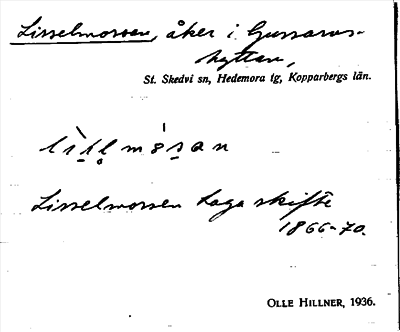 Lisselmossen, åker i Gussarvs-
hyttan,
St. Skedvi sn, Hedemora tg, Kopparbergs län.
Lisselmossen Laga skifte
1866-70.
OLLE HILLNER, 1936.